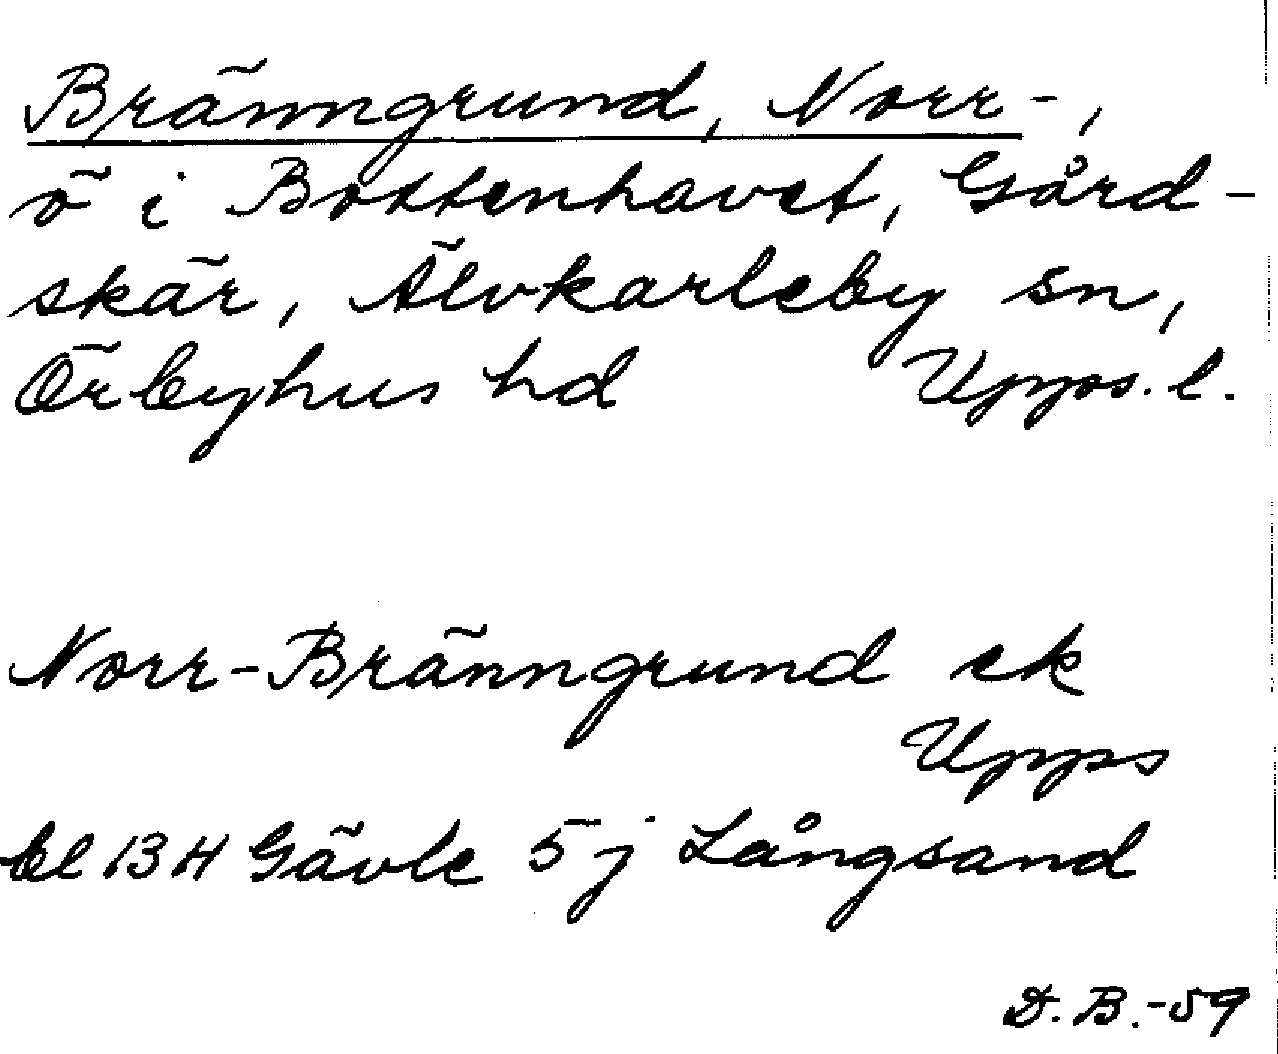 Bränngrund, Norr-,
ö i Bottenhavet, Gård-
skär, Älvkarleby sn,
Örbyhus hd Upps. l.
Norr-Bränngrund ek
Upps
bl 13 H Gävle 5 j Långsand
D. B. -59